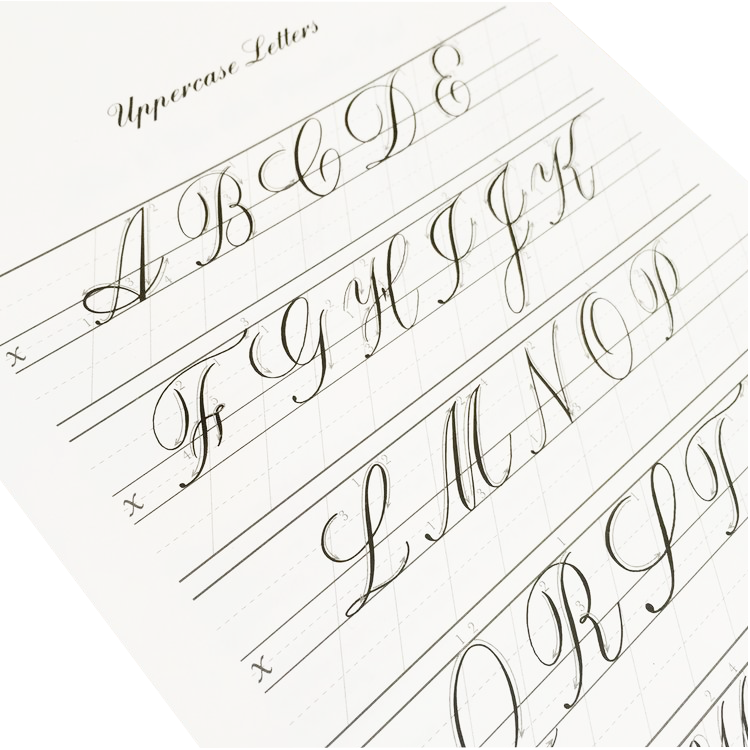 Uppercase Letters
A B C D E
x F G H I J K
x L M N O P
x Q R S T